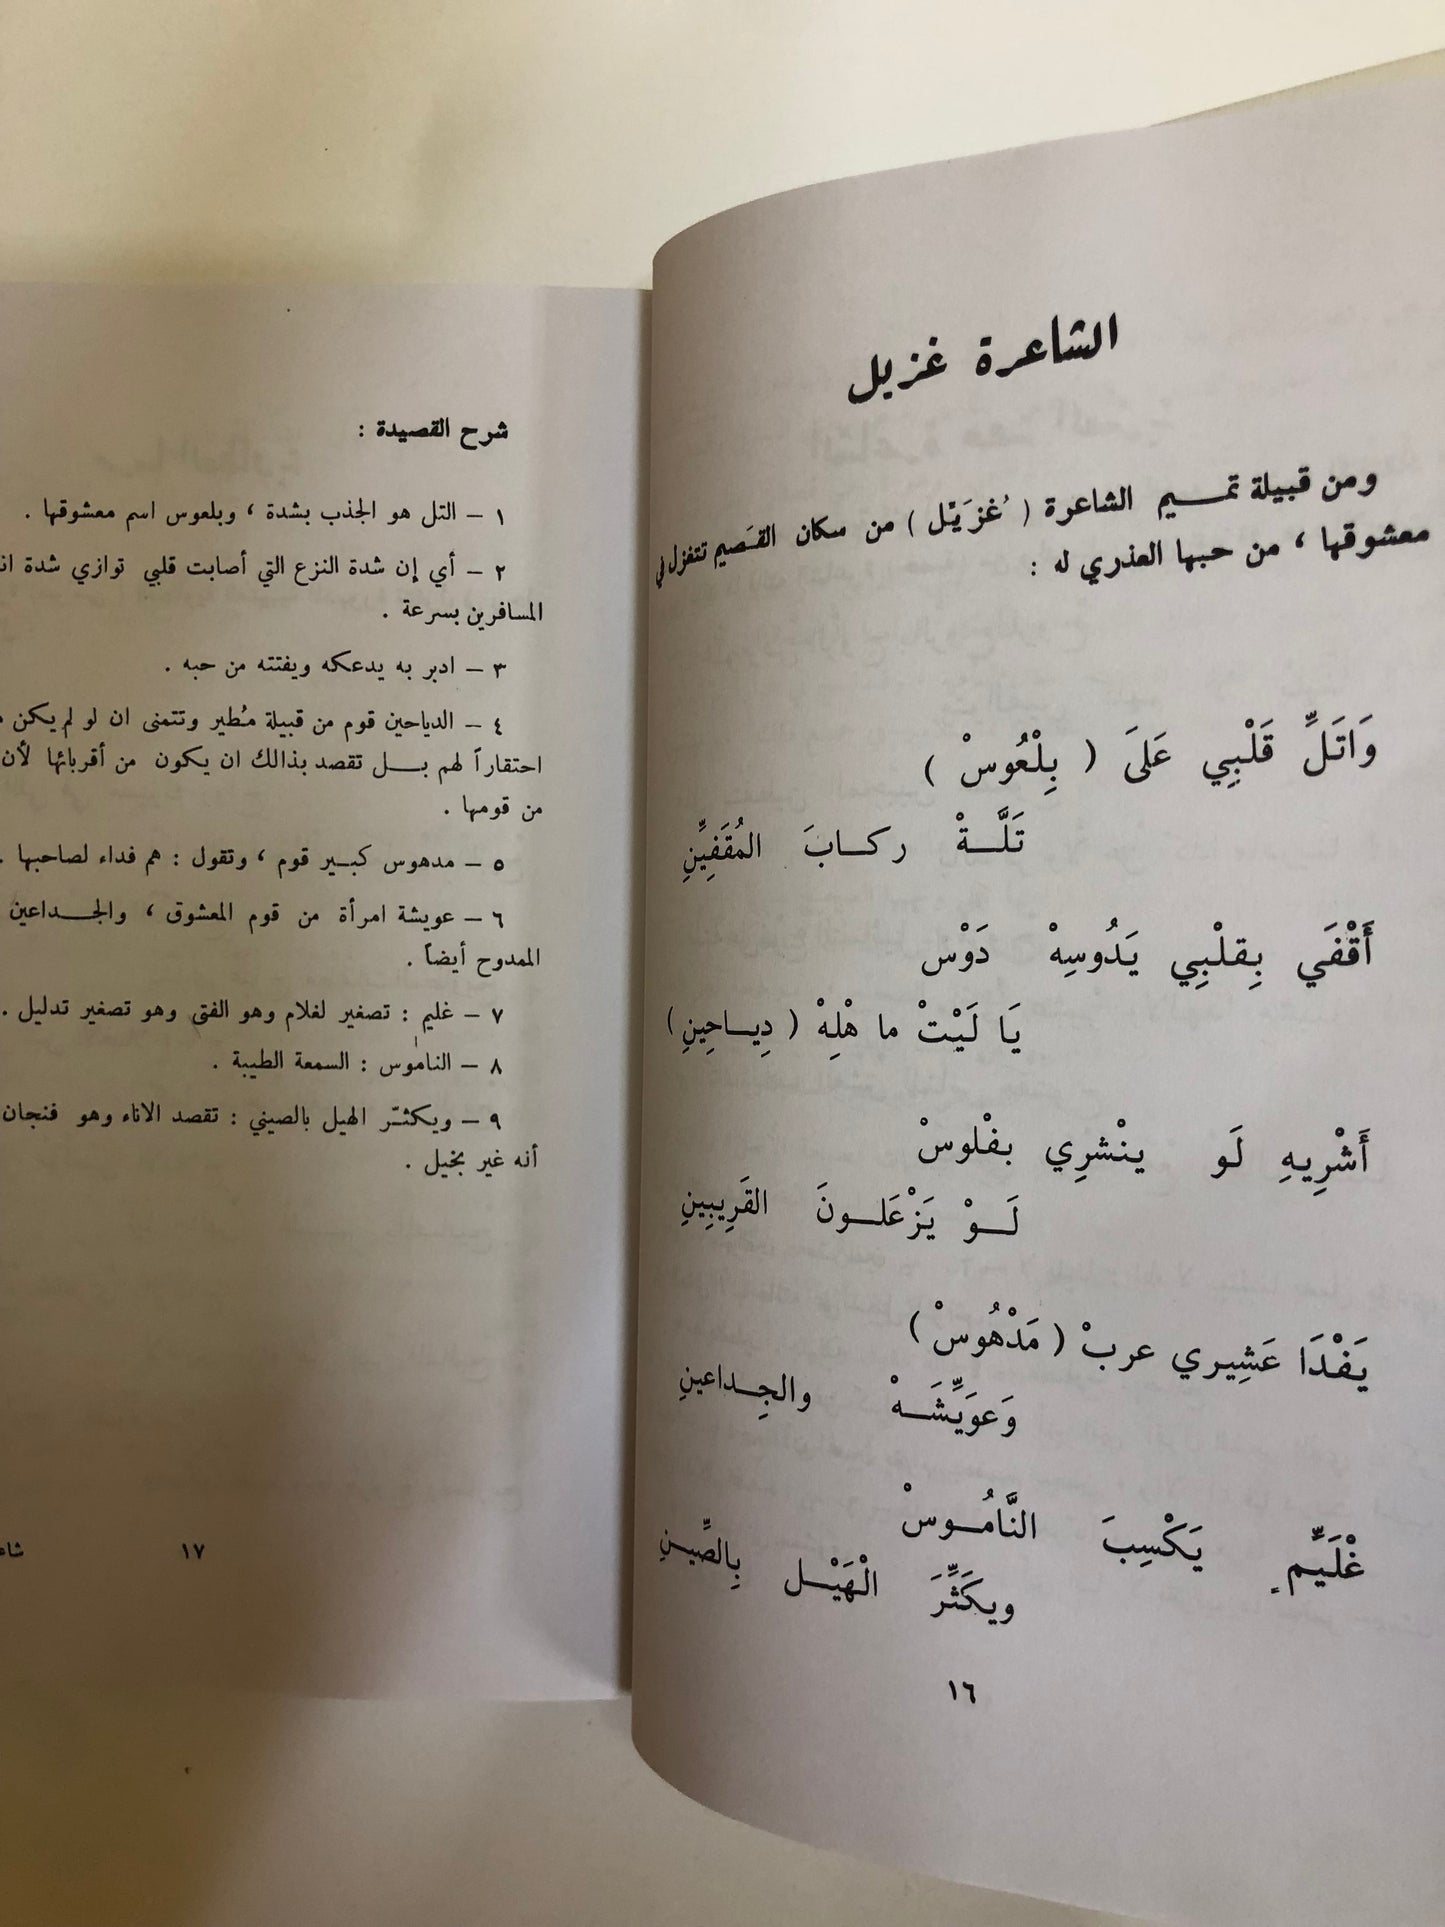 الشاعرة غزيل
ومن قبيلة تمـــيم الشاعرة ( غُزَيّل ) من سكان القَصيم تتغزل في
معشوقها ، من حبها العذري له :
وَاتَلِّ قَلْبِي عَلىَ ( بِلْعُوسْ )
تَلَّـــةْ ركـــابَ المُقَفِيِّنِ
أَقْفَي بِقلْبِي يَدُوسِهْ دَوْس
يَا لَيْتْ ما هْلِهْ ( دِيـــاحِينِ )
أَشْرِيهِ لَو ينْشرِي بفْلوسْ
لَـــوْ يَزْعَلـــونَ القَرِيبِينِ
يَفْدَا عَشِيري عربْ ( مَدْهُوسْ )
وَعوَيِّشَـــهْ والجِـــداعينِ
غْلَيِّمٍ يَكْسِبَ النَّامُـــوسْ
ويكَثِّرَ الْهَيْـــل بِالصِّيـــنِ
١٦
شرح القصيدة :
١ – التل هو الجذب بشدة ، وبلعوس اسم معشوقها .
٢ – أي إن شدة النزع التي أصابت قلبي توازي شدة
المسافرين بسرعة .
٣ – ادبر به يدعكه ويفتته من حبه .
٤ – الدياحين قوم من قبيلة مُطير وتتمنى ان لو لم يكن
احتقاراً لهم بـــل تقصد بذالك ان يكون من أقربائها لأن
من قومها .
٥ – مدهوس كبـــير قوم ، وتقول : هم فداء لصاحبها .
٦ – عويشة امرأة من قوم المعشوق ، والجـــداعين
الممدوح أيضاً .
٧ – غليم : تصغير لغلام وهو الفتى وهو تصغير تدليل .
٨ – الناموس : السمعة الطيبة .
٩ – ويكثّر الهيل بالصيني : تقصد الاناء وهو فنجان
أنه غير بخيل .
١٧